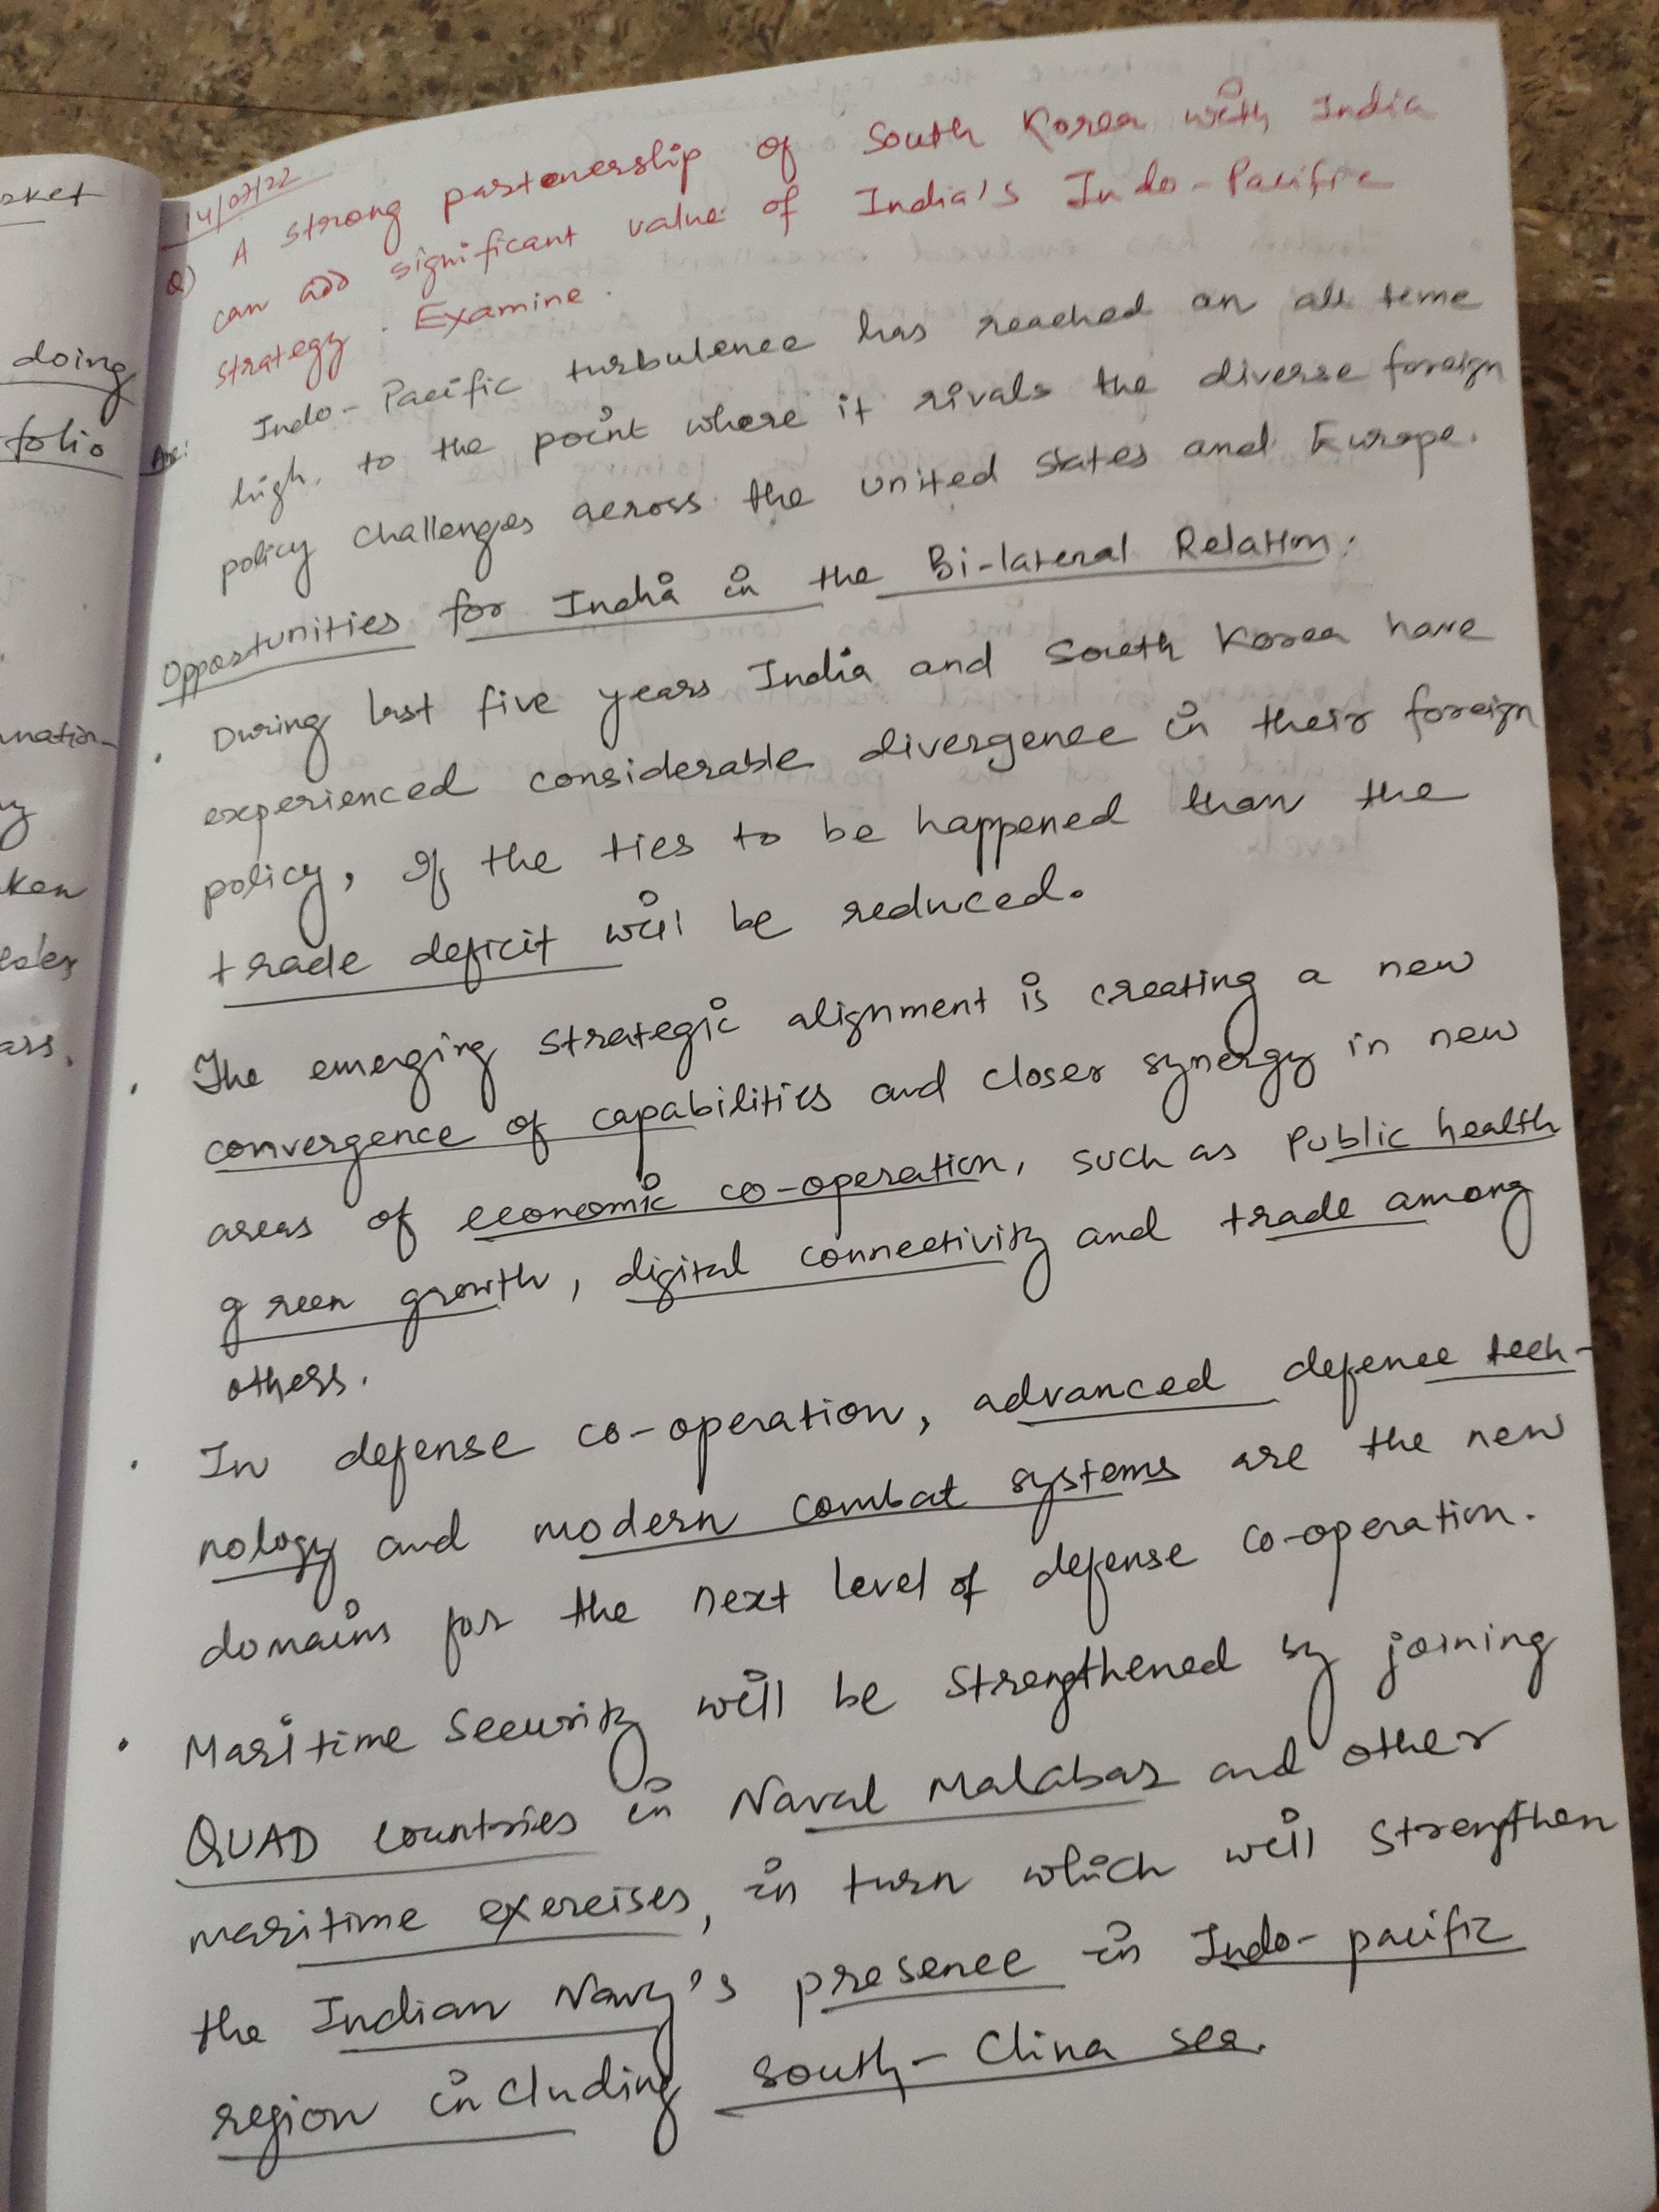 14/07/22
Q) A strong partenership of South Korea with India
can add significant value of India's Indo-Pacific
strategy. Examine.
Ans: Indo-Pacific turbulence has reached an all time
high, to the point where it rivals the diverse foreign
policy challenges across the united states and Europe.
Opportunities for India in the Bi-lateral Relation:
• During last five years India and South Korea have
experienced considerable divergence in their foreign
policy, If the ties to be happened than the
trade deficit will be reduced.
• The emerging strategic alignment is creating a new
convergence of capabilities and closer synergy in new
areas of economic co-operation, such as Public health
green growth, digital connectivity and trade among
others.
• In defense co-operation, advanced defence tech-
nology and modern combat systems are the new
domains for the next level of defense co-operation.
• Maritime Security will be Strengthened by joining
QUAD countries in Naval Malabar and other
maritime exercises, in turn which will Strengthen
the Indian Navy's presence in Indo-pacific
region including south-China sea.
doing
folio